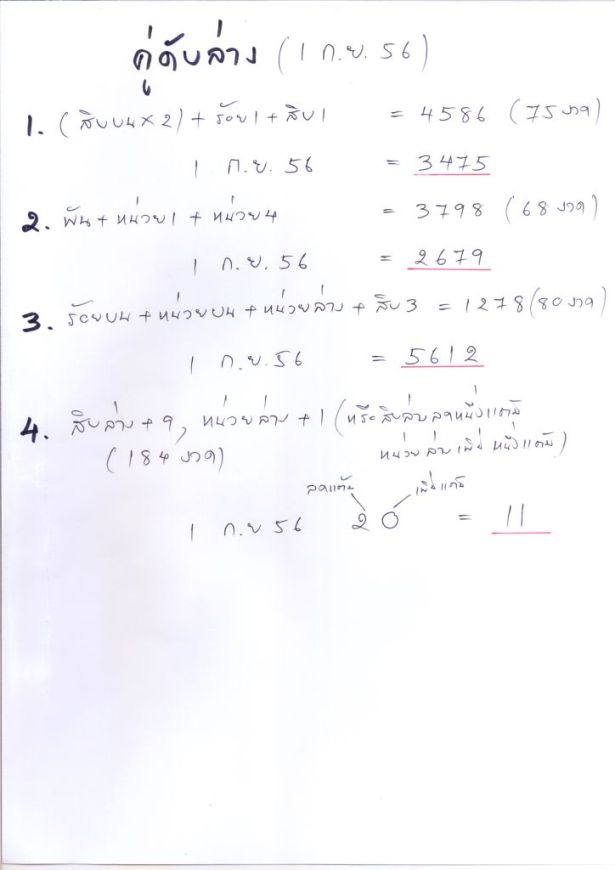 คู่ดับล่าง (1 ก.ย. 56)
1. (สิบบน x 2) + ร้อย1 + สิบ1 = 4586 (75 งวด)
1 ก.ย. 56 = 3475
2. พัน + หน่วย1 + หน่วย4 = 3798 (68 งวด)
1 ก.ย. 56 = 2679
3. ร้อยบน + หน่วยบน + หน่วยล่าง + สิบ3 = 1278 (80 งวด)
1 ก.ย. 56 = 5612
4. สิบล่าง + 9, หน่วยล่าง + 1 (หรือสิบล่างลดหนึ่งแต้ม
(184 งวด) หน่วยล่างเพิ่มหนึ่งแต้ม)
ลดแต้ม เพิ่มแต้ม
1 ก.ย 56 20 = 11